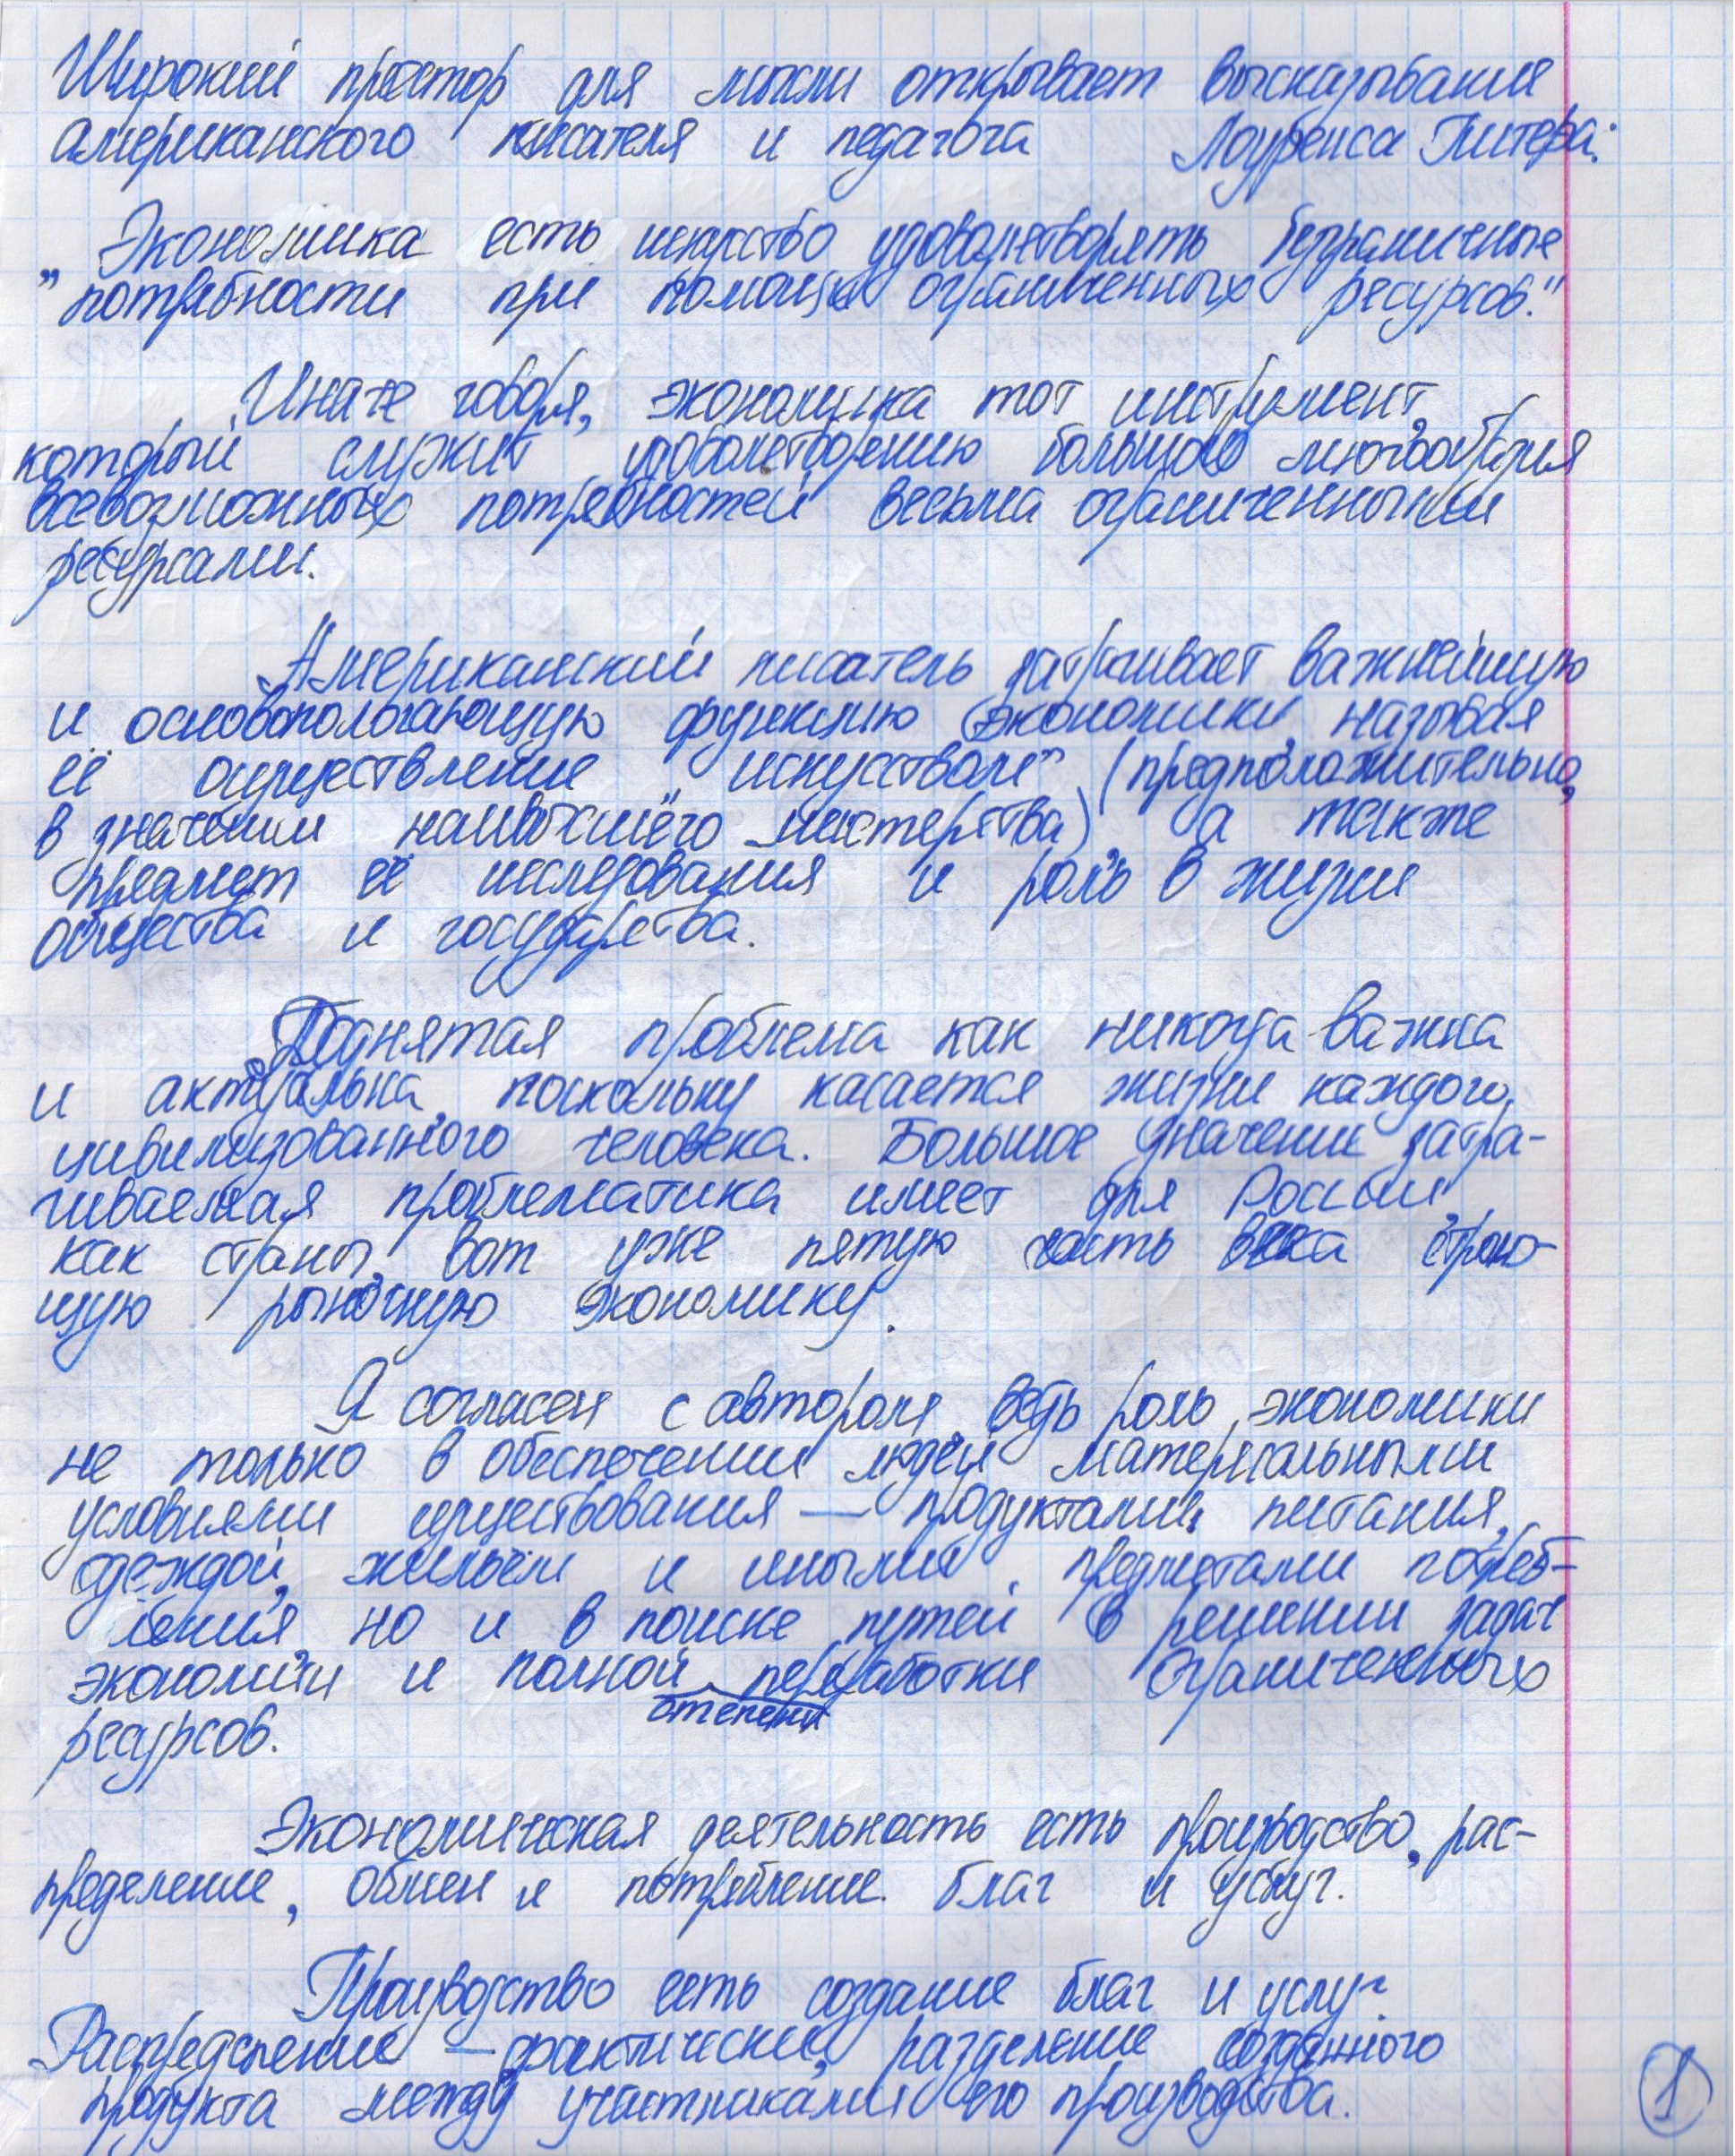 Широкий простор для мысли открывает высказывание
американского писателя и педагога Лоуренса Питера:
Экономика есть искусство удовлетворять безграничные
„потребности при помощи ограниченных ресурсов."
Иначе говоря, экономика тот инструмент,
который служит удовлетворению большого многообразия
всевозможных потребностей весьма ограниченными
ресурсами.
Американский писатель затрагивает важнейшую
и основопологающую функцию экономики, называя
её осуществление „искусством" (предположительно,
в значении наивысшего мастерства), а также
предмет её исследования и роль в жизни
общества и государства.
Поднятая проблема как никогда важна
и актуальна, поскольку касается жизни каждого
цивилизованного человека. Большое значение затра-
гиваемая проблематика имеет для России,
как страны, вот уже пятую часть века строю-
щую рыночную экономику.
Я согласен с автором, ведь роль экономики
не только в обеспечении людей материальными
условиями существования — продуктами питания,
одеждой, жильём и иными предметами потреб-
ления, но и в поиске путей в решении задач
экономии и полной степени переработки ограниченных
ресурсов.
Экономическая деятельность есть производство, рас-
пределение, обмен и потребление благ и услуг.
Производство есть создание благ и услуг.
Распределение — фактически, разделение созданного
продукта между участниками его производства.
1